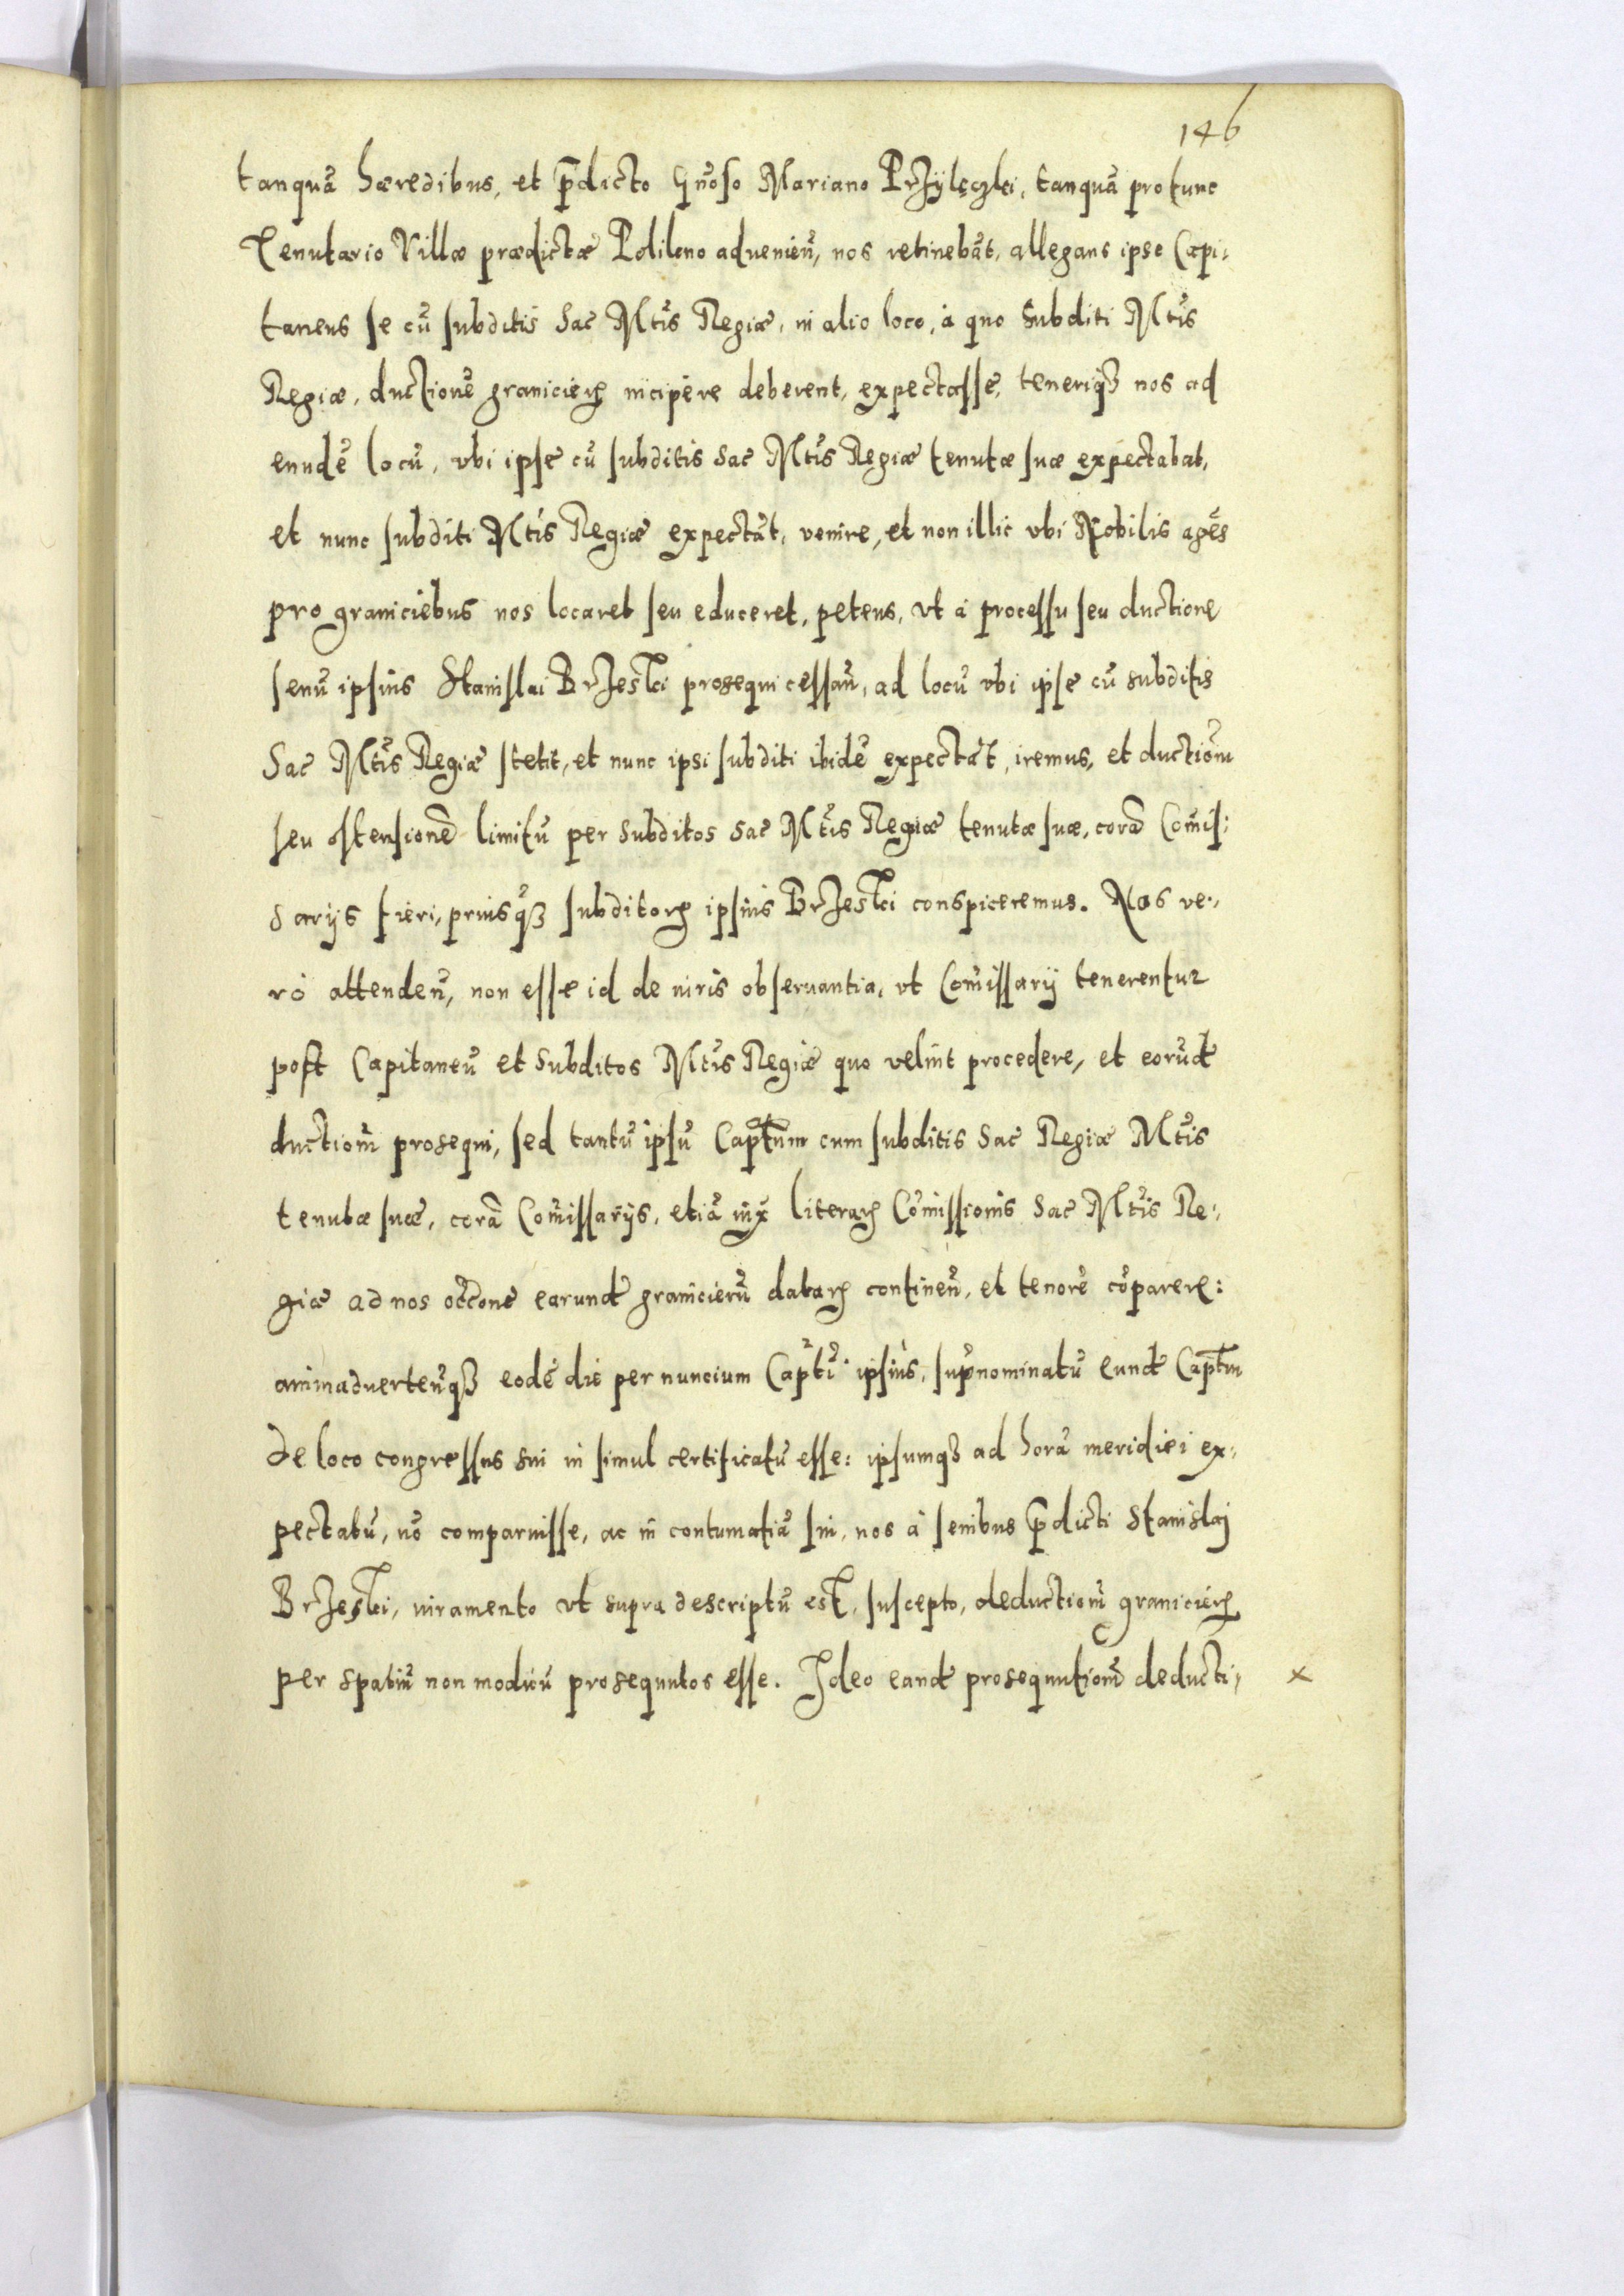 146
tanquã hæredibus, et p̃dicto Gñoso Mariano Przÿlęczki, tanquã protunc
Tenutario Villæ prædictæ Polilcno aduenień, nos retinebãt, allegans ipse Capi:
taneus se cũ subditis Sac Mt̃is Regiæ, in alio loco, à quo Subditi Mt̃is
Regiæ, ductionẽ granicierꝝ incipere deberent, expectasse, teneriqꝫ nos ad
eundẽ locũ, vbi ipse cũ subditis Sac Mt̃is Regiæ tenutæ suæ expectabat,
et nunc subditi Mt̃is Regiæ expectãt, venire, et non illic vbi Nobilis agẽs
pro graniciebus nos locaret seu educeret, petens, vt à processu seu ductione
senũ ipsius Stanislai Brzeski prosequi cessaũ, ad locũ vbi ipse cũ subditis
Sac Mt̃is Regiæ stetit, et nunc ipsi subditi ibidẽ expectãt, iremus, et ductiom̃
seu ostensionẽ limitũ per subditos Sac Mt̃is Regiæ tenutæ suæ, corã Com̃is:
sarijs fieri, priusqꝫ subditorꝝ ipsius Brzeski conspiceremus. Nos ve:
rò attendeñ, non esse id de iuris obseruantia, vt Com̃issarij tenerentur
post Capitaneũ et subditos Mt̃is Regiæ quo velint procedere, et eorũd
ductiom̃ prosequi, sed tantũ ipsũ Captum cum subditis Sac Regiæ Mt̃is
tenutæ suæ, corã Com̃issarijs, etiã iux literarꝝ Com̃issionis Sac Mt̃is Re:
giæ ad nos oc̃c̃one earund granicierũ datarꝝ contineñ, et tenorẽ cõparere:
animaduerteñqꝫ eodẽ die per nuncium Capti ipsius, sup̃nominatũ eund Captm
de loco congressus sui in simul certificatũ esse: ipsumqꝫ ad horã meridiei ex:
pectatũ, nõ comparuisse, ac in contumatiã sui, nos à senibus p̃dicti Stanislaj
Brzeski, iuramento vt supra descriptũ est, suscepto, deductiom̃ granicierꝝ
per spatiũ non modicũ prosequutos esse. Ideo eand prosequutiom̃ deducti: x